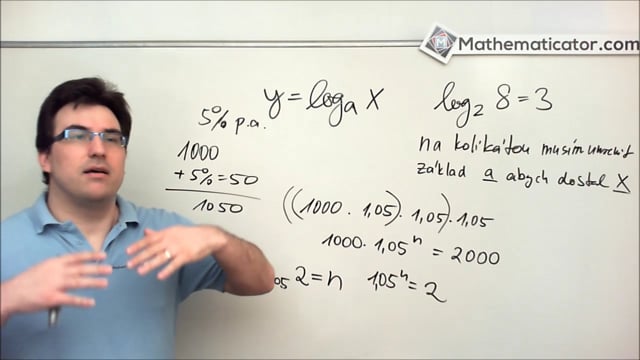 Mathematicator.com
y = logₐ x
log₂ 8 = 3
5% p.a.
na kolikátou musím umocnit
základ a abych dostal X
1000
+ 5% = 50
1050
((1000 . 1,05) . 1,05) . 1,05
1000 . 1,05ⁿ = 2000
05 2 = n
1,05ⁿ = 2